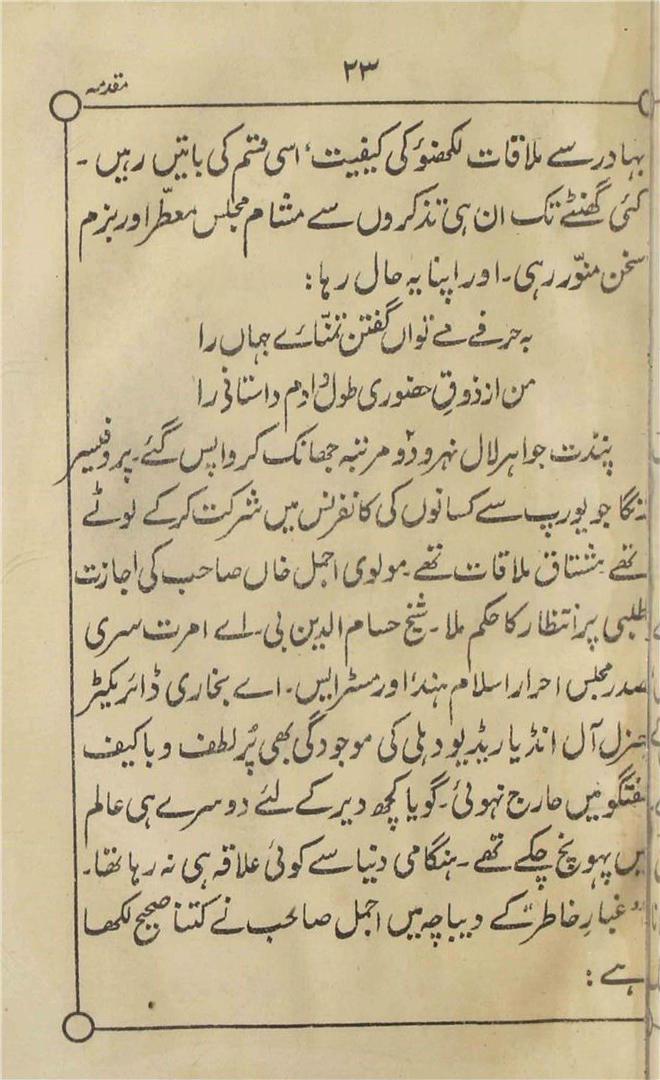 ۲۳
مقدمہ
بہادر سے ملاقات لکھنؤ کی کیفیت، اسی قسم کی باتیں رہیں۔
کئی گھنٹے تک ان ہی تذکروں سے مشام مجلس معطّر اور بزم
سخن منوّر رہی۔ اور اپنا یہ حال رہا:
بہ حرفے مے تواں گفتن تمنّائے جہاں را
من از ذوقِ حضوری طول دادم داستانی را
پنڈت جواہر لال نہرو دو مرتبہ جھانک کر واپس گئے۔ پروفیسر
رنگا جو یورپ سے کسانوں کی کانفرنس میں شرکت کرکے لوٹے
تھے مشتاق ملاقات تھے۔ مولوی اجمل خاں صاحب کی اجازت
طلبی پر انتظار کا حکم ملا۔ شیخ حسام الدین بی۔ اے امرت سری
صدر مجلس احرار اسلام ہند، اور مسٹر ایس۔ اے بخاری ڈائریکٹر
جنرل آل انڈیا ریڈیو دہلی کی موجودگی بھی پُر لطف و باکیف
گفتگو میں حارج نہوئی۔ گویا کچھ دیر کے لئے دوسرے ہی عالم
میں پہونچ چکے تھے۔ ہنگامی دنیا سے کوئی علاقہ ہی نہ رہا تھا۔
"غبارِ خاطر" کے دیباچہ میں اجمل صاحب نے کتنا صحیح لکھا
ہے: